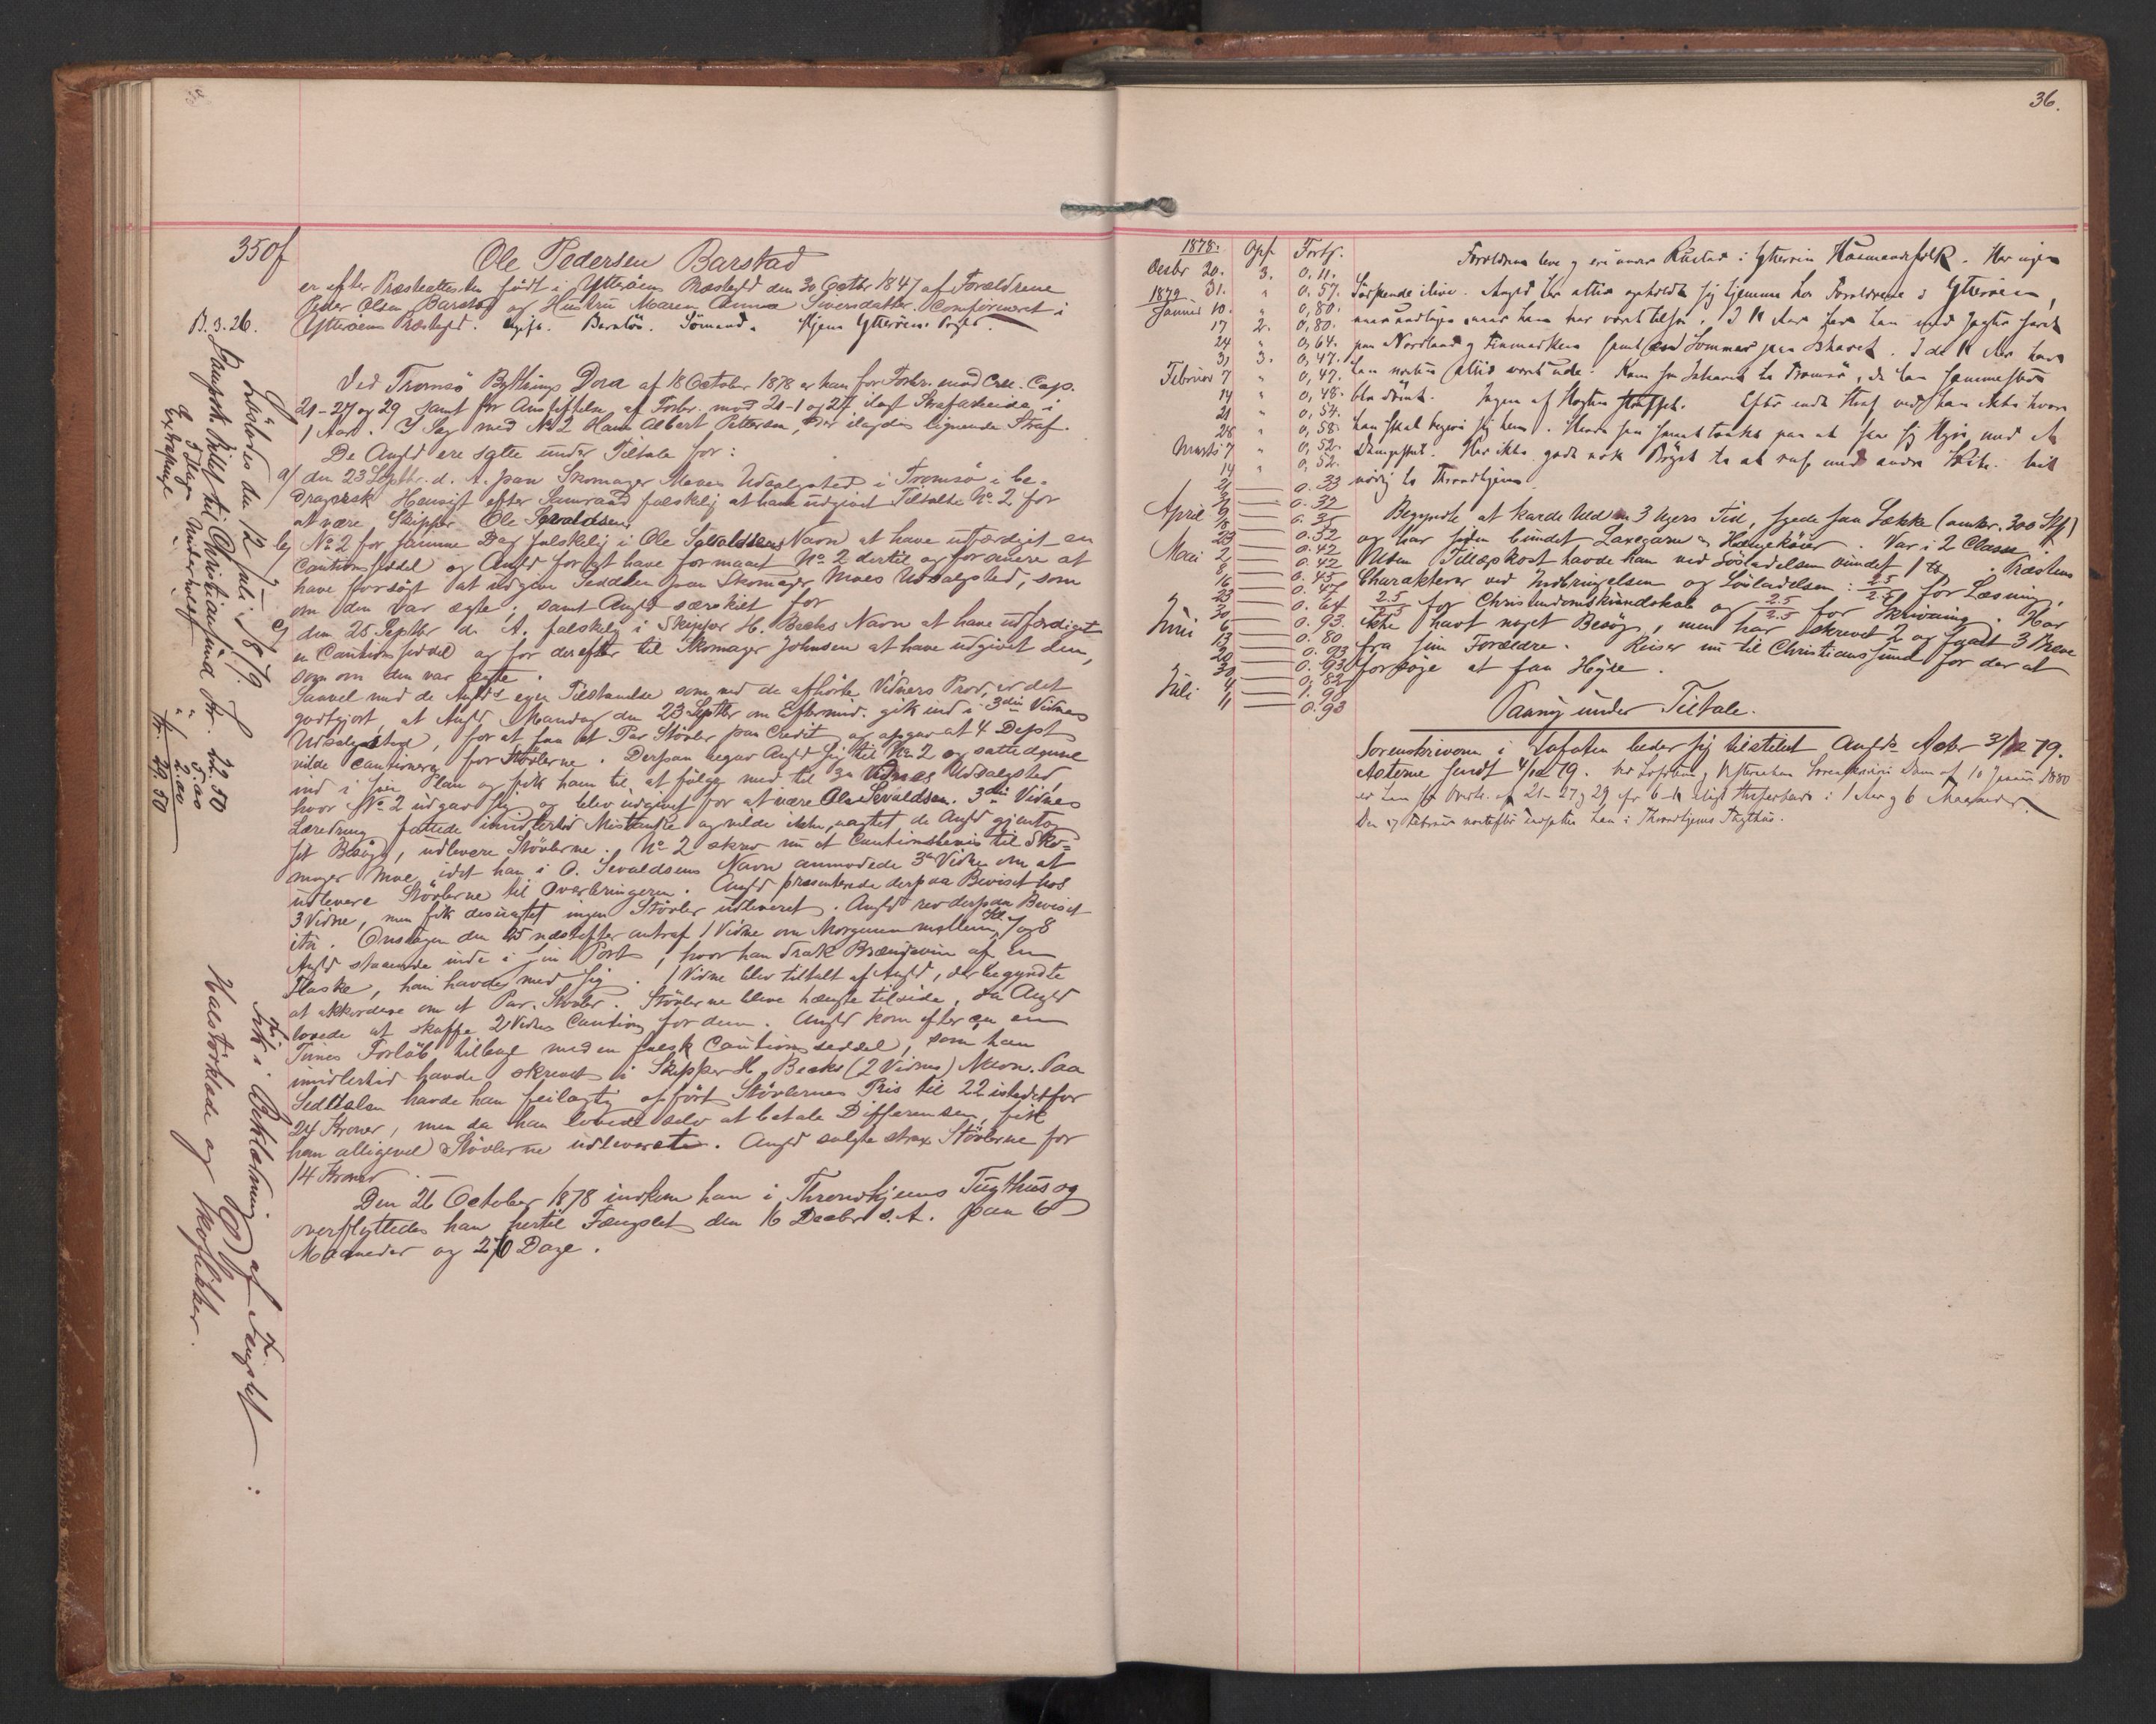 350f
Ole Pedersen Barstad
er efter Præsteattesten født i Ytterøens Præstegjd den 30 Octbr 1847 af Forældrene
Peder Olsen Barstad og Hustru Maren Anna Siversdatter. Confirmeret i
Ytterøens Præstegjd. Ugift. Barnløs. Sömand. Hjem Ytterøens Prgjd.
B. 3. 26.
Ved Tromsö Bythings Dom af 18 October 1878 er han for Forbr. mod Crl. Cap.
21-27 og 29 samt for Anstiftelse af Forbr. mod 21-1 og 27 ilagt Strafarbeide i
1 Aar. I Sag med No 2 Hans Albert Pettersen, der ilagdes lignende Straf.
De Angjd ere satte under Tiltale for:
a) den 23 Septbr. d. A. paa Skomager Moes Udsalgsted i Tromsö i be-
dragersk Hensigt efter Samraad falskelig at have udgivet Tiltalte No 2 for
at være Skipper Ole Sevaldsen
b) No 2 for samme Dag falskelig i Ole Sevaldsens Navn at have utfærdiget en
Cautionsseddel og Angjd for at have formaaet No 2 dertil og for videre at
have forsögt at udgive Seddelen paa Skomager Moes Udsalgsted, som
om den var ægte; samt Angjd særskilt for
c) den 25 Septbr d. A. falskelig i Skipper H. Becks Navn at have udfærdiget
en Cautionsseddel og for derefter til Skomager Johnsen at have udgivet den,
som om den var ægte.
Saavel med de Angjds egen Tilstaaelse som ved de afhörte Vidners Prov, er det
godtgjort, at Angjd Mandag den 23 Septbr om Eftermid. gik ind i 3die Vidnes
Udsalgsted, for at faa et Par Stövler paa Credit og opgav at 4 Depst
vilde cautionere for Stövlerne. Derpaa begav Angjd sig til No 2 og satte denne
ind i sin Plan og fik ham til at fölge med til 3die Vidnes Udsalgsted,
hvor No 2 udgav sig og blev udgivet for at være Ole Sevaldsen. 3die Vidnes
Læredreng fattede imidlertid Mistanke og vilde ikke, uagtet de Angjd gjentog
sit Besög, udlevere Stövlerne. No 2 skrev nu et Cautionsbevis til Sko-
mager Moe, idet han i O. Sevaldsens Navn anmodede 3die Vidne om at
udlevere Stövlerne til Overbringeren. Angjd præsenterede derpaa Beviset hos
3 Vidne, men fik desuagtet ingen Stövler udleveret. Angjd rev derpaa Beviset
itu. Onsdagen den 25 næstefter antraf 1 Vidne om Morgenen mellem Kl. 7 og 8
Angjd staaende inde i sin Port, hvor han drak Brændevin af en
Flaske, han havde med sig. 1 Vidne blev tiltalt af Angjd, der begyndte
at akkordere om et Par Stövler. Stövlerne bleve hængte tilside, da Angjd
lovede at skaffe 2 Vidnes Caution for dem. Angjd kom efter en
Times Forlöb tilbage med en falsk Cautionsseddel, som han
imidlertid havde skrevet i Skipper H. Becks (2 Vidnes) Navn. Paa
Seddelen havde han feilagtig opfört Stövlernes Pris til 22 istedetfor
24 Kroner, men da han lovede selv at betale Differensen, fik
han alligevel Stövlerne udleverete. Angjd solgte strax Stövlerne for
14 Kroner.
Den 26 October 1878 indkom han i Throndhjems Tugthus og
overflyttedes han hertil Fængslet den 16 Decbr d. A. paa 6
Maaneder og 26 Dage.
Löslodes den 12 Juli 1879.
Dampsk. Billet til Christiansund Kr. 22 50
d. 3 Dages Underhold " 5.00
Extrapenge " 2.00
Kr. 29. 50
Fik i Beklædning af Fængslet:
Halstörklæde og Skoflikker.
36.
1878. Opf. Fortj.
Decbr 20. 3. 0.11.
31. " 0.57.
1879
Januar 10. " 0,80.
17 2. 0,80.
24 " 0,64.
31 3. 0,47.
Februar 7 " 0,47.
14 " 0,48.
21 " 0,54.
28 " 0,58.
Marts 7 " 0,52.
14 " 0,52.
21 0.33
0.32
April 0.35
18 0.52
25 0.42
Mai 2 0.42
8 0.45
16 0.47
23 0.64
30 0.93.
Juni 6 0.80
13 0.93
20 0.93
30 0.82
Juli 4 1.98
11 0.93
Forældrene leve og ere under Rustad i Ytterøen Husmandsfolk. Har ingen
Södskende ilive. Angjd har altid opholdt sig hjemme hos Forældrene i Ytterøen,
naar undtages naar han har været tilsös. I 11 Aar har han med Jagter faret
paa Nordland og Finmarken samt en Sommer paa Ishavet. I de 11 Aar har
han næsten altid været ude. Kom fra Ishavet til Tromsö, da han sammesteds
blev dömt. Ingen af Slægten straffet. Efter endt Straf ved han ikke hvor
han skal begive sig hen.
Dampskib. Har ikke godt nok Bryst til at
Throndhjem.
Begyndte at karde Uld en 3 Ugers Tid, syede saa Sække (omkr. 300 Stk)
og har siden bundet Laxegarn og Hængekøier. Var i 2 Classe.
Uden Tillægskost havde han ved Löslodelsen vundet 1 tb. Præstens
Charakterer ved Indbringelsen og Löslodelsen: 2.5/2.5 for Læsning,
2.5/2.5 for Christendomskundskab og 2.5/2.5 for Skrivning. Har
ikke havt noget Besög, men har skrevet 2 og faaet 3 Breve
fra sine Forældre. Reiser nu til Christianssund for der at
forsöge at faa Hyre.
Paany under Tiltale.
Sorenskriveren i Lofoten beder sig tilstillet Angjds Akter 3/12 79.
Akterne sendt 4/12 79. Ved Lofotens og Vesteraalens Sorenskriveri Dom af 10 Januar 1880
er han for Overtr. af 21-27 og 29 cfr 6-11 ilagt Strafarbeide i 1 Aar og 6 Maaneder.
Den 27 Februar næstefter indsattes han i Throndhjems Tugthus.